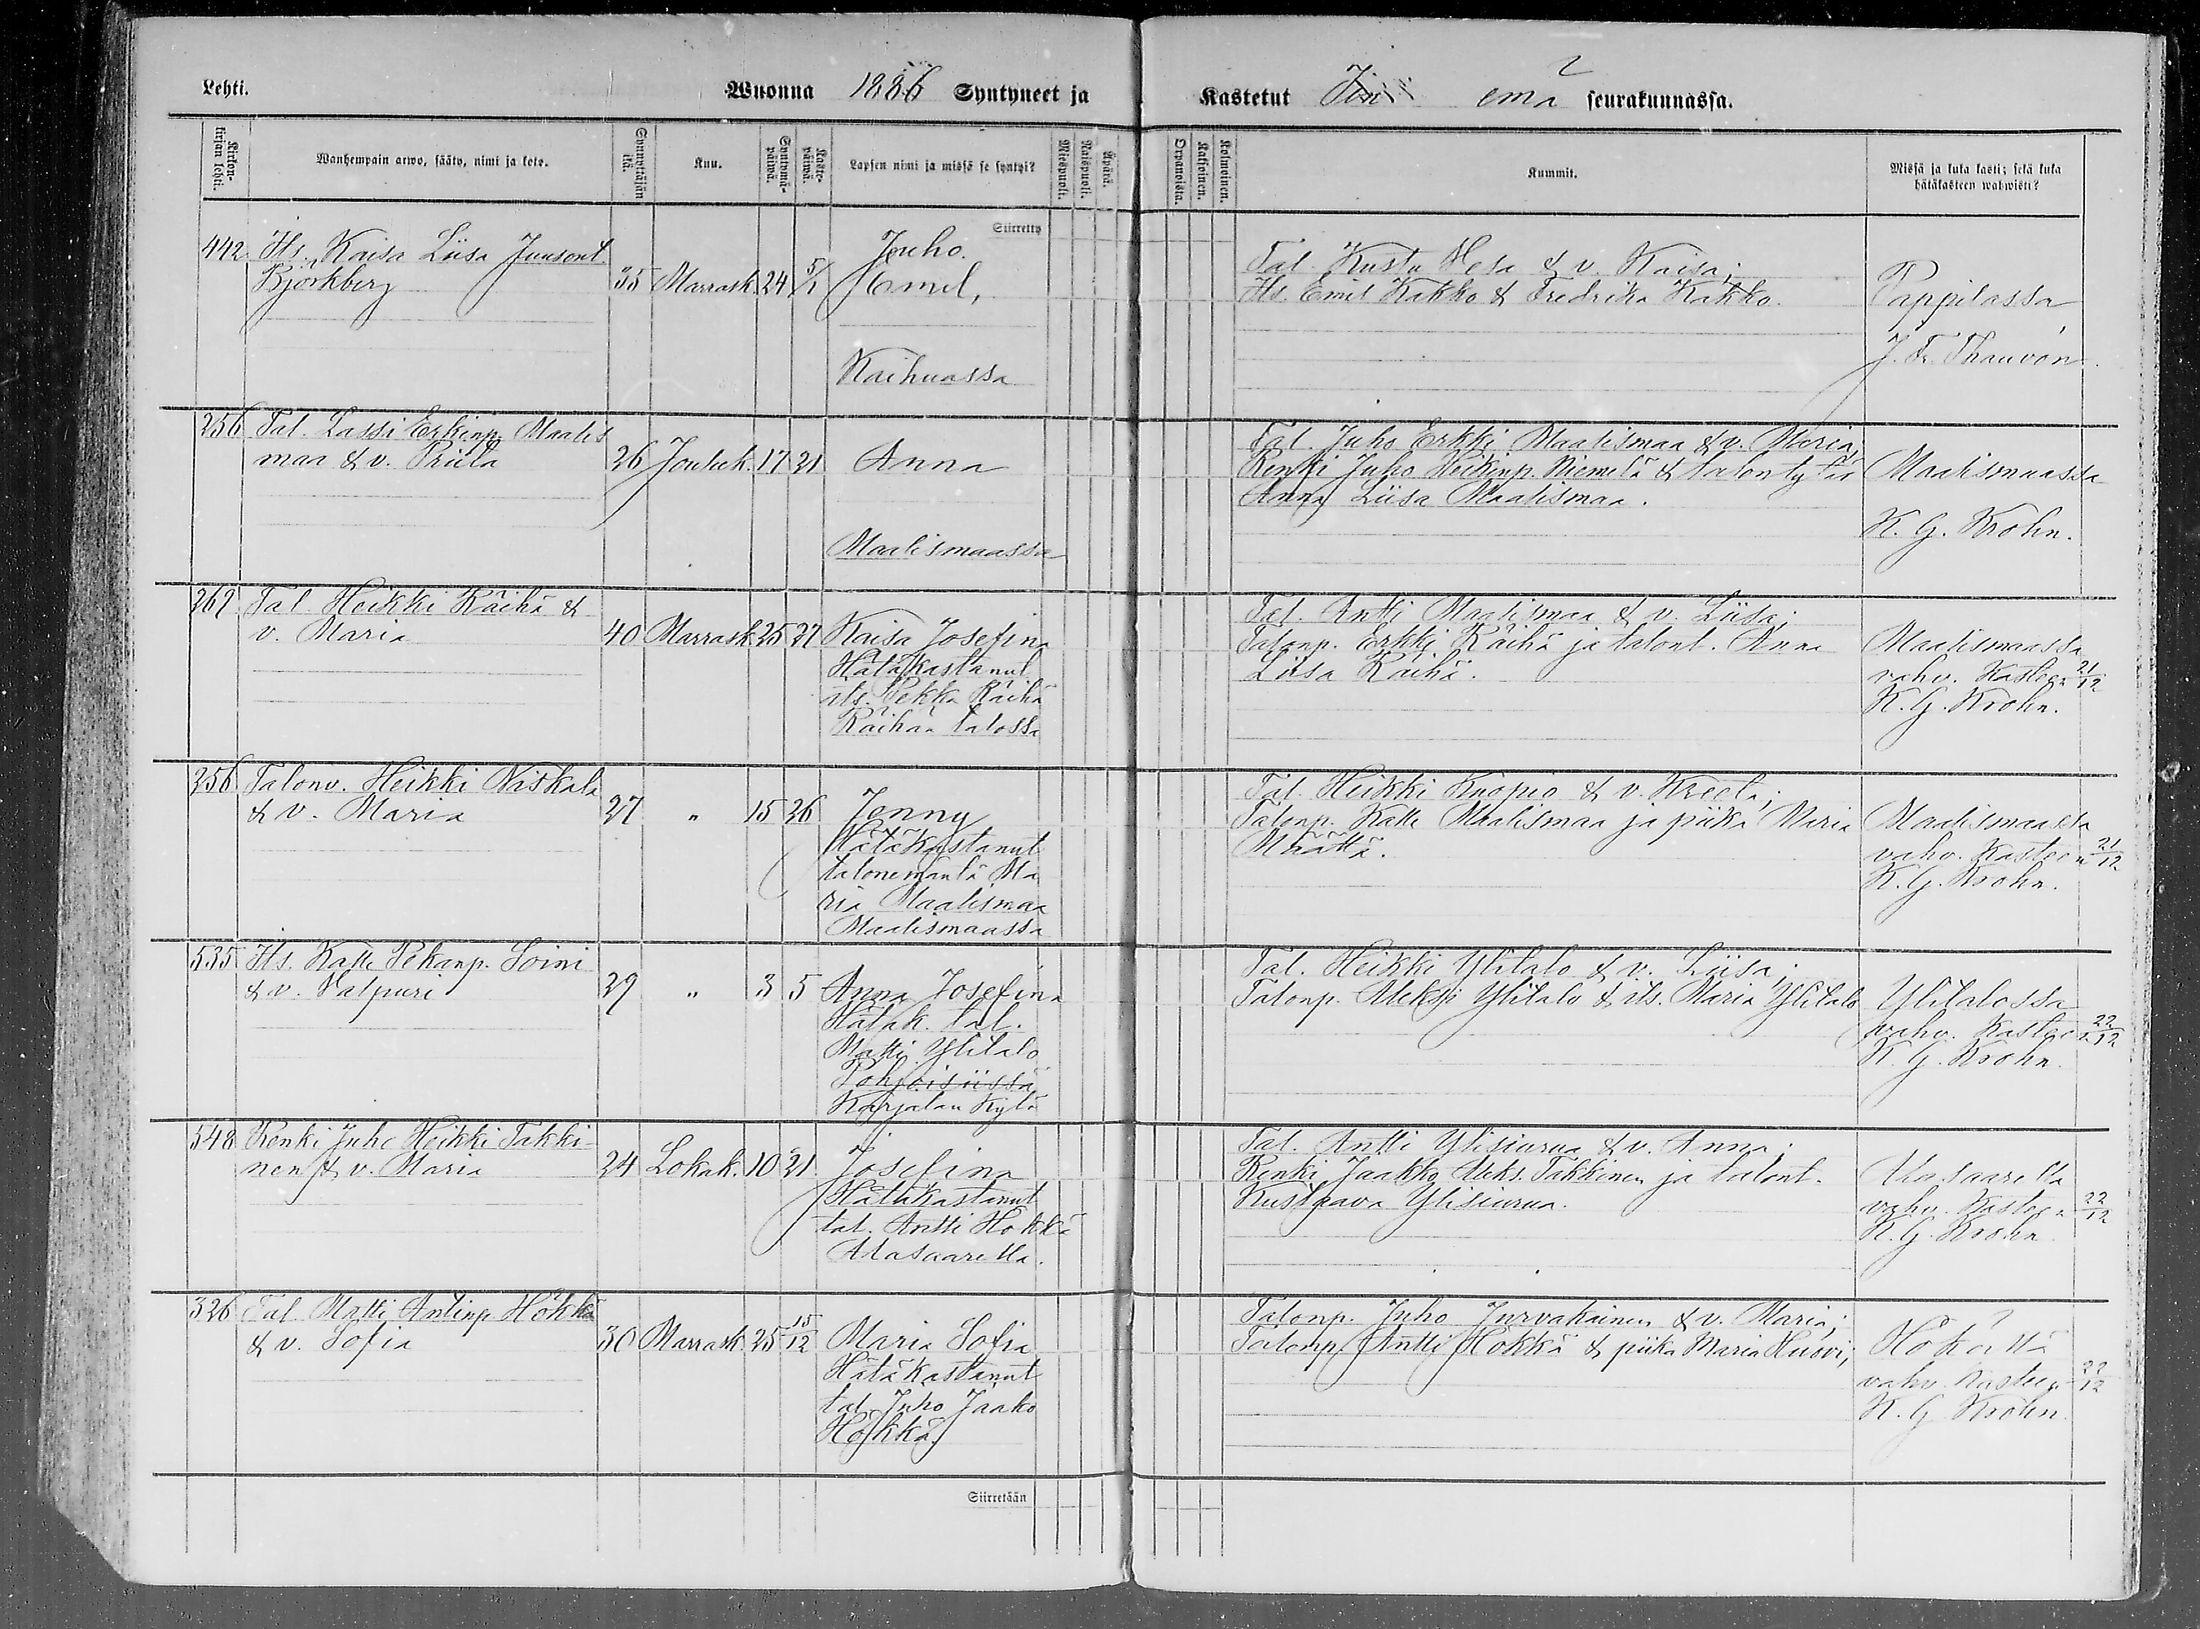 Lehti.
Wuonna 1886 Syntyneet ja
Kastetut Iin emä seurakunnassa.
2
Kirkonkirjan lehti.
Wanhempain arwo, sääty, nimi ja koto.
Synnyttäjän ikä.
Kuu.
Syntymäpäiwä.
Kastepäiwä.
Lapsen nimi ja missä se syntyi?
Miespuoli.
Naispuoli.
Äpärä.
Orpanoista.
Kaksoinen.
Kolmoinen.
Kummit.
Missä ja kuka kasti; sekä kuka hätäkasteen wahwisti?
Siirretty
442 Its. Kaisa Liisa Juusont.
Björkberg 35 Marrask. 24 5/1
Juho
Emil,
Kaihuassa
Tal. Kustu Hesa & v. Kaisa;
Its. Emil Kakko & Fredrika Kakko.
Pappilassa
J. Fr. Thauvón.
256 Tal. Lassi Erkinp. Maalis
maa & v. Priita 26 Jouluk. 17 21 Anna
Maalismaassa
Tal. Juho Erkki Maalismaa & v. Maria;
Renki Juho Heikinp. Niemelä & talontytär
Anna Liisa Maalismaa.
Maalismaassa
K. G. Krohn.
262 Tal. Heikki Räihä &
v. Maria 40 Marrask. 25 27 Kaisa Josefina
Hätäkastanut
its. Pekka Räihä
Räihän talossa
Tal. Antti Maalismaa & v. Liisa;
Talonp. Erkki Räihä ja talont. Anna
Liisa Räihä.
Maalismaassa
vahv. Kasteen 21/12
K. G. Krohn.
256 Talonv. Heikki Niskala
& v. Maria 27 " 15 26 Jenny
Hätäkastanut
talonemäntä Ma
ria Maalismaa
Maalismaassa
Tal. Heikki Kuopio & v. Kreeta;
Talonp. Kalle Maalismaa ja piika Maria
Määttä.
Maalismaassa
vahv. Kasteen 21/12
K. G. Krohn.
535 Its. Kalle Pekanp. Soini
& v. Valpuri 29 " 3 5 Anna Josefina
Hätäk. tal.
Matti Ylitalo
Pohjoisiissä
Karjalan Kylä
Tal. Heikki Ylitalo & v. Liisa;
Talonp. Aleksi Ylitalo & its. Maria Ylitalo
Ylitalossa
vahv. Kasteen 22/12
K. G. Krohn.
548 Renki Juho Heikki Takki-
nen & v. Maria 24 Lokak. 10 21. Josefina
Hätäkastanut
tal. Antti Hökkä
Alasaarella.
Tal. Antti Ylisiurua & v. Anna;
Renki Jaakko Aleks. Takkinen ja talont.
Kustaava Ylisiurua.
Alasaarella
vahv. Kasteen 22/12
K. G. Krohn
326 Tal. Matti Antinp. Hökkä
& v. Sofia 30 Marrask. 25 15/12 Maria Sofia
Hätäkastanut
tal. Juho Jaako
Hökkä
Talonp. Juho Jurvakainen & v. Maria;
Talonp. Antti Hökkä & piika Maria Huovi;
Hökällä
vahv. Kasteen 22/12
K. G. Krohn
Siirretään